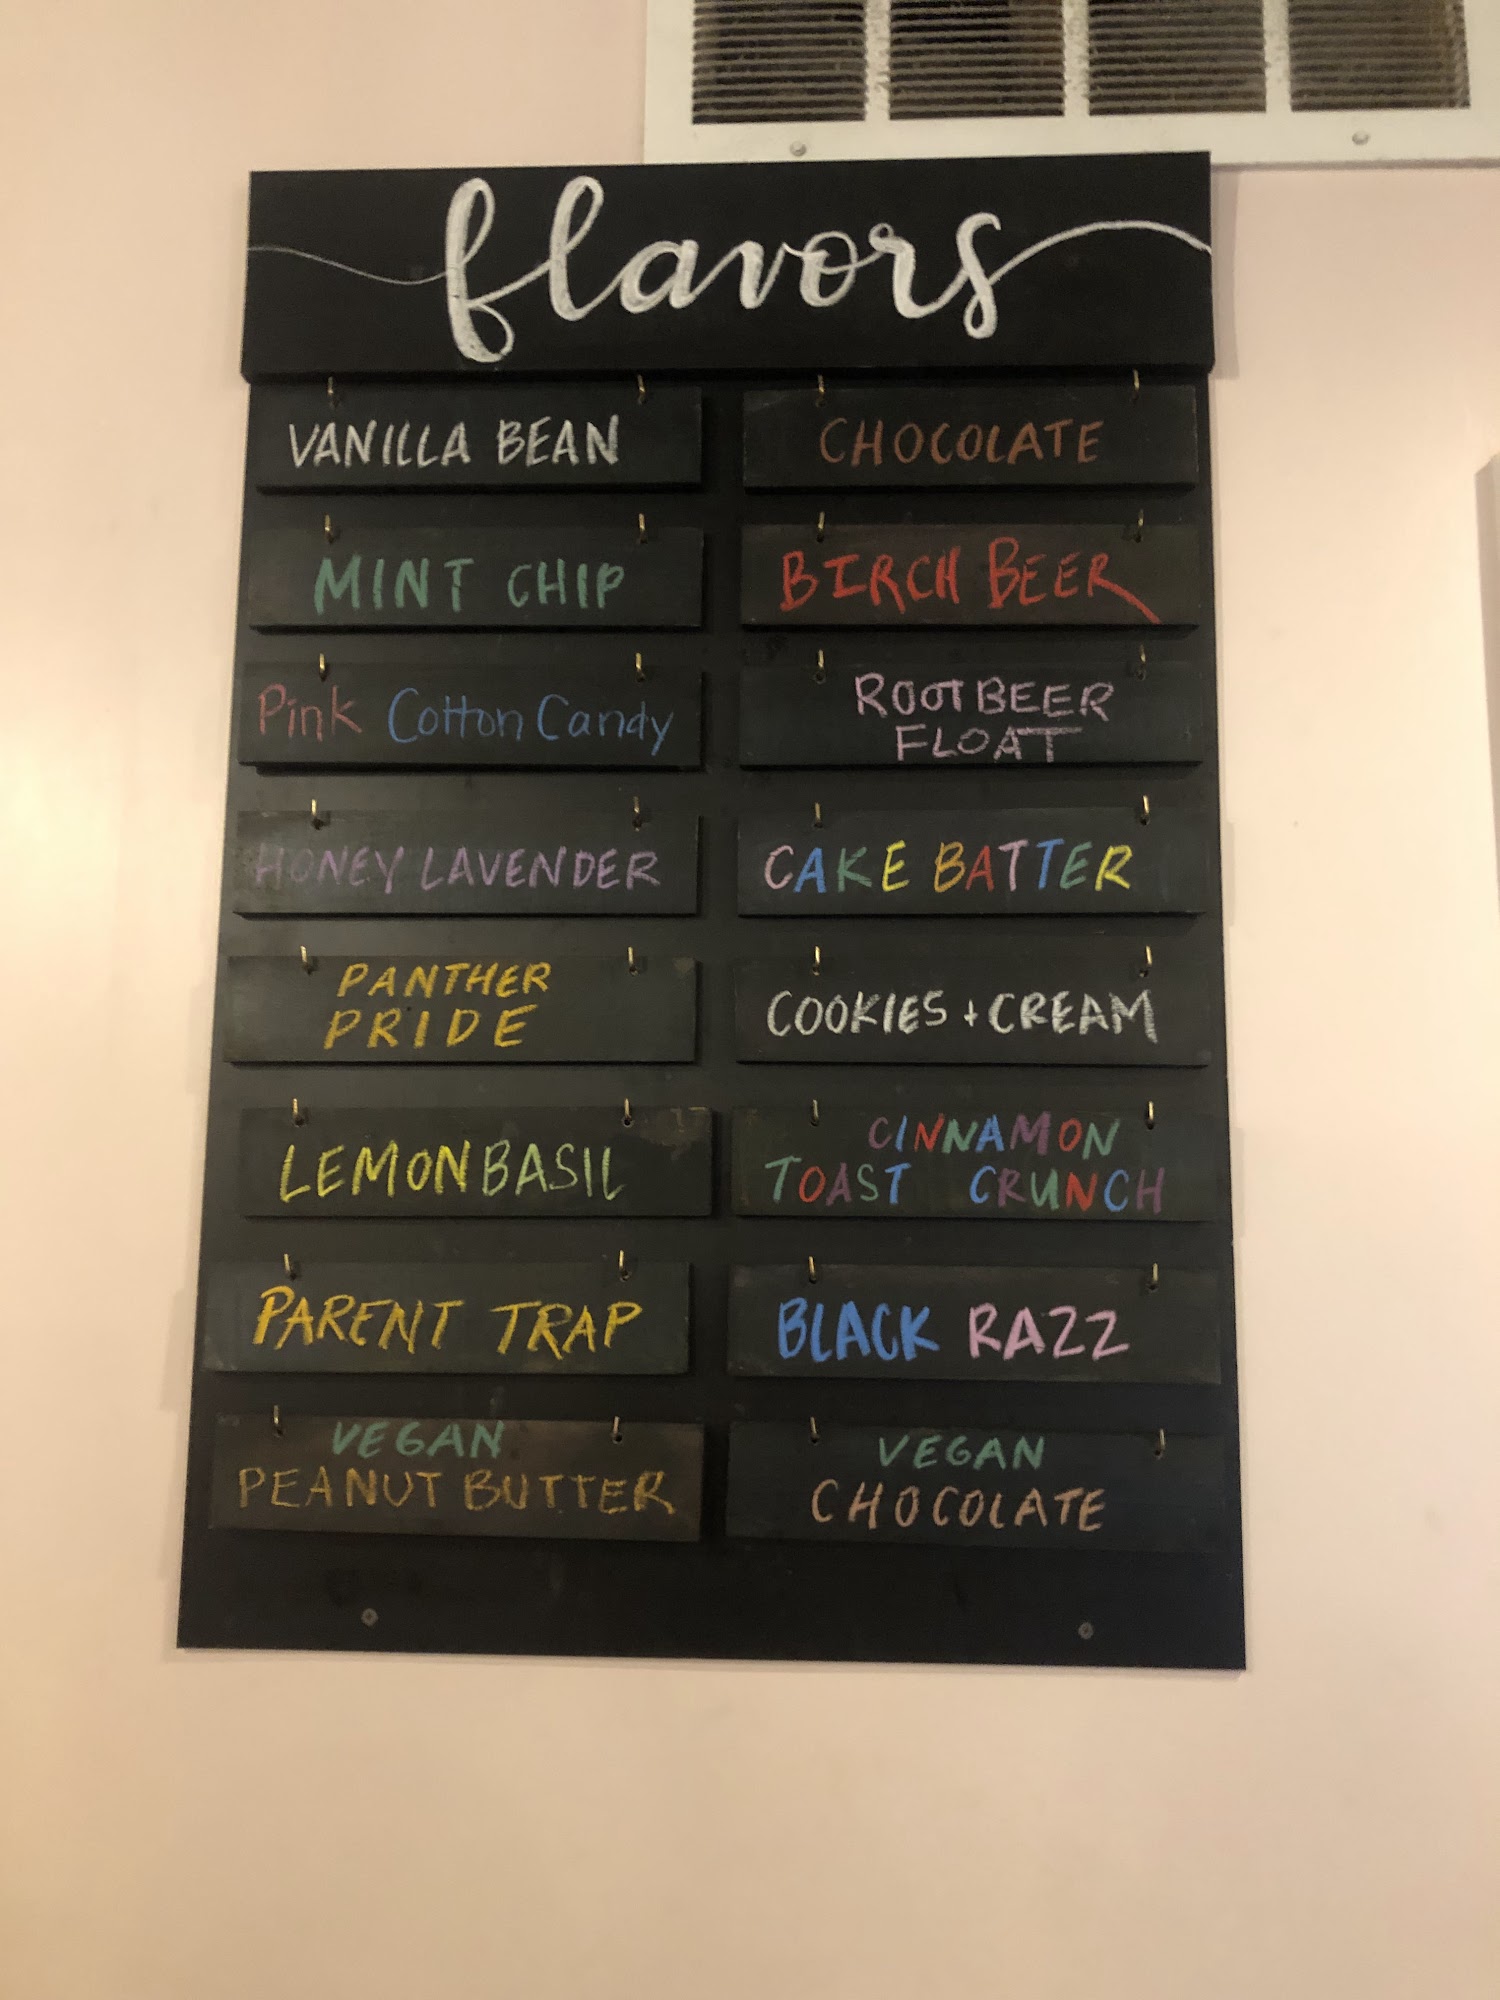 flavors
VANILLA BEAN
CHOCOLATE
MINT CHIP
BIRCH BEER
Pink Cotton Candy
ROOT BEER
FLOAT
HONEY LAVENDER
CAKE BATTER
PANTHER
PRIDE
COOKIES + CREAM
LEMON BASIL
CINNAMON
TOAST CRUNCH
PARENT TRAP
BLACK RAZZ
VEGAN
PEANUT BUTTER
VEGAN
CHOCOLATE